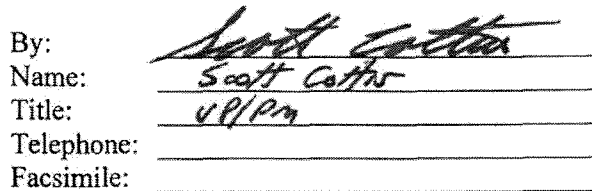 By: Scott Cotter
Name: Scott Cotter
Title: VP/PM
Telephone:
Facsimile: